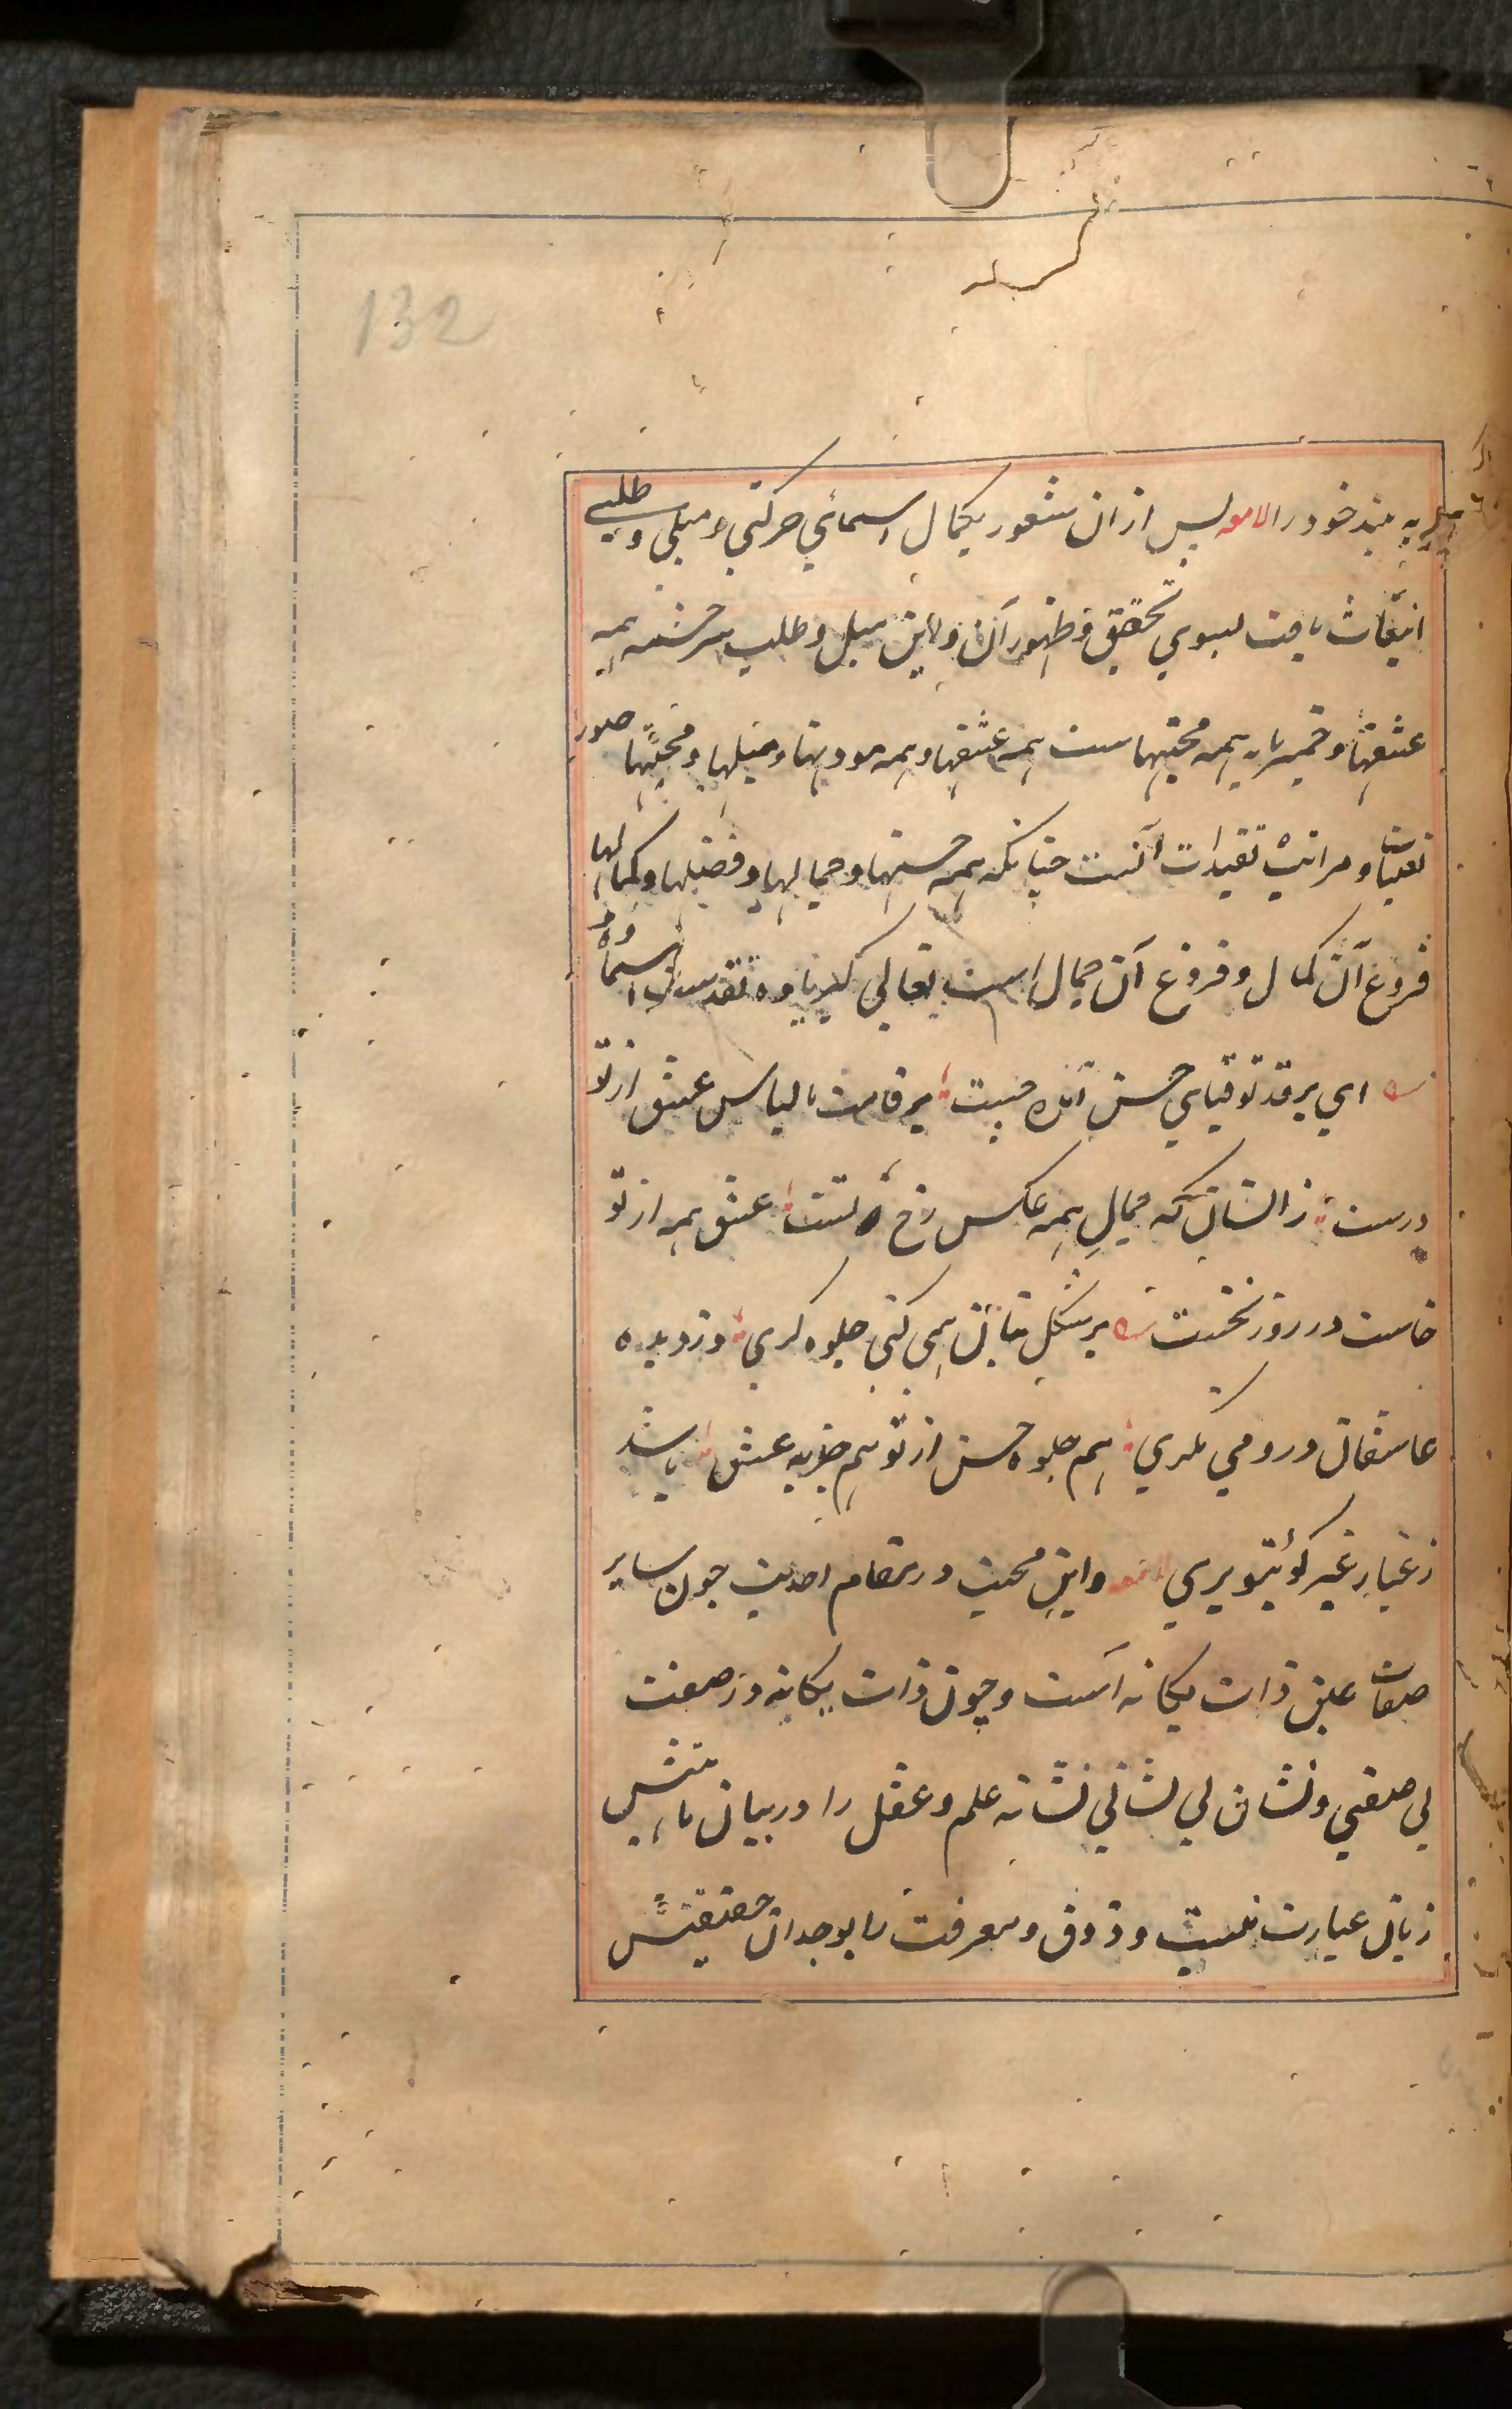 132
به بیند خود را لامعه پس از ان شعور بکمال اسمائی حرکتی و میلی و طلبی
انبعاث یافت بسوی تحقیق و ظهور آن و این میل و طلب سرچشمه همه
عشقها و خمیر مایه همه محبتهاست همه عشقها و همه مودتها و میلها و محبتها صور
تعینات و مراتب تقیدات آنست چنانکه همه حسنها و جمالها و فضلها و کمالها
فروغ آن کمال و فروع آن جمال است تعالی کبریاوه و تقدست اسماوه
ای بر قد تو قبای حسن آمده چست بر قامت ما لباس عشق از تو
درست زانسان که جمالِ همه عکس رخ تست عشق همه از تو
خاست در روز نخست بر شکل بتان همی کنی جلوه گری وز دیده
عاشقان درو می نگری هم جلوه حسن از تو هم جذبه عشق باشد
ز غبارِ غیر کویتو بری لامعه و این محبت در مقام احدیت چون سایر
صفات عین ذات یگانه است و چون ذات یگانه در صفت
بی صفتی و نشان بی نشانی نشانه علم و عقل را در بیان ماهیتش
زبان عبارت نیست و ذوق و معرفت را بوجدان حقیقتش